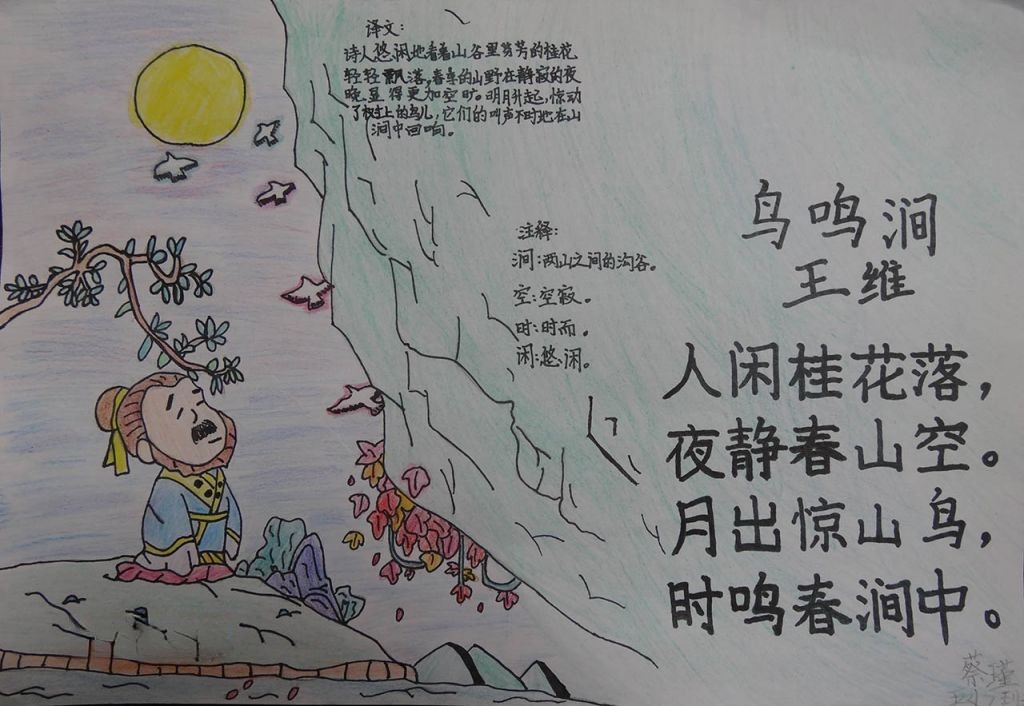 译文:
诗人悠闲地看着山谷里芬芳的桂花
轻轻飘落,春季的山野在静寂的夜
晚显得更加空旷。明月升起,惊动
了树上的鸟儿,它们的叫声不时地在山
涧中回响。
注释:
涧:两山之间的沟谷。
空:空寂。
时:时而。
闲:悠闲。
鸟鸣涧
王维
人闲桂花落,
夜静春山空。
月出惊山鸟,
时鸣春涧中。
蔡瑾